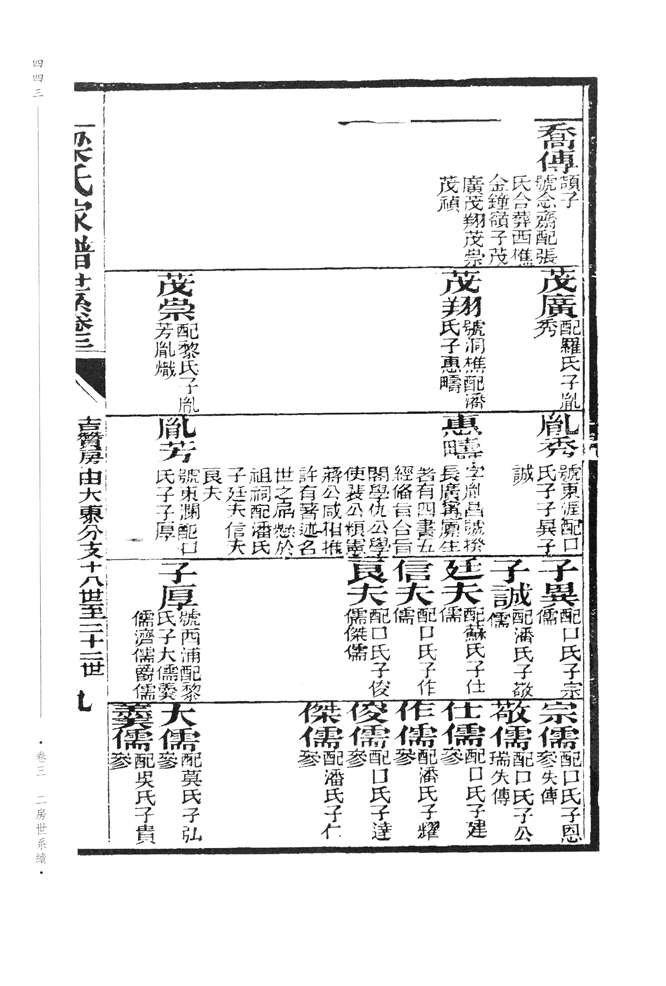 喬傳
頴子
號念齋配張
氏合葬西僬
金鐘嶺子茂
廣茂翔茂崇
茂禎
茂廣
配羅氏子胤
秀
茂翔
號洞樵配潘
氏子惠疇
茂崇
配黎氏子胤
芳胤熾
胤秀
號東涯配口
氏子子異子
誠
惠疇
字胤昌號揆
長廣寗廪生
著有四書五
經脩旨合旨
閣學仇公學
使裴公楨憲
蔣公咸相推
許有著述名
世之扁懸於
祖祠配潘氏
子廷夫信夫
良夫
胤芳
號東瀾配口
氏子子厚
子異
配口氏子宗
儒
子誠
配潘氏子敬
儒
廷夫
配蘇氏子仕
儒
信夫
配口氏子作
儒
良夫
配口氏子俊
儒傑儒
子厚
號西浦配黎
氏子大儒羙
儒濟儒爵儒
宗儒
配口氏子恩
叅失傳
敬儒
配口氏子公
瑞失傳
仕儒
配口氏子建
叅
作儒
配潘氏子耀
叅
俊儒
配口氏子達
叅
傑儒
配潘氏子仁
叅
大儒
配莫氏子弘
叅
羙儒
配吳氏子貴
叅
梁氏家譜世系卷三
吉贊房由大東分支十八世至二十二世
九
四四三
·卷三 二房世系續·